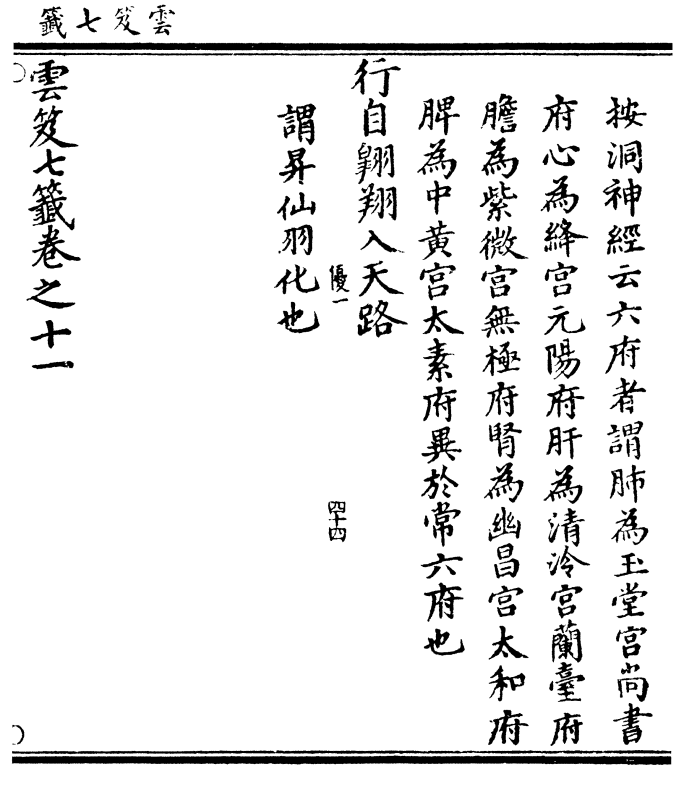 雲笈七籤
按洞神經云六府者謂肺為玉堂宮尚書
府心為絳宮元陽府肝為清泠宮蘭臺府
膽為紫微宮無極府腎為幽昌宮太和府
脾為中黃宮太素府異於常六府也
行自翱翔入天路
優一
四十四
謂昇仙羽化也
雲笈七籤卷之十一